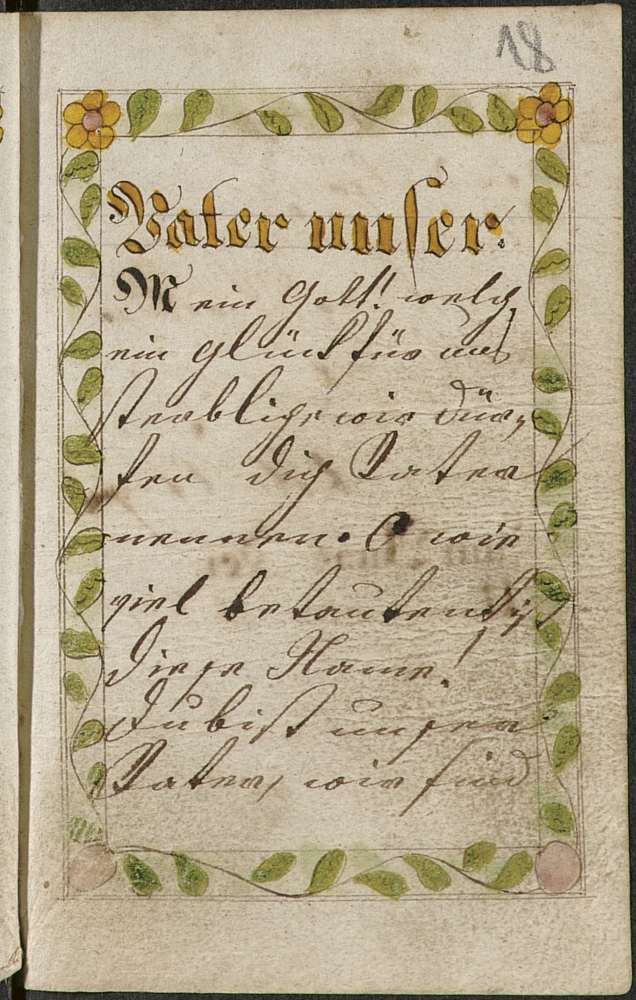 18
Vater unser.
Mein Gott! welch
ein Glück für uns
sterbliche wir dür,
fen dich Vater
nennen. O wie
viel betautend ist
dieße Name!
Du bist unser
Vater, wir sind